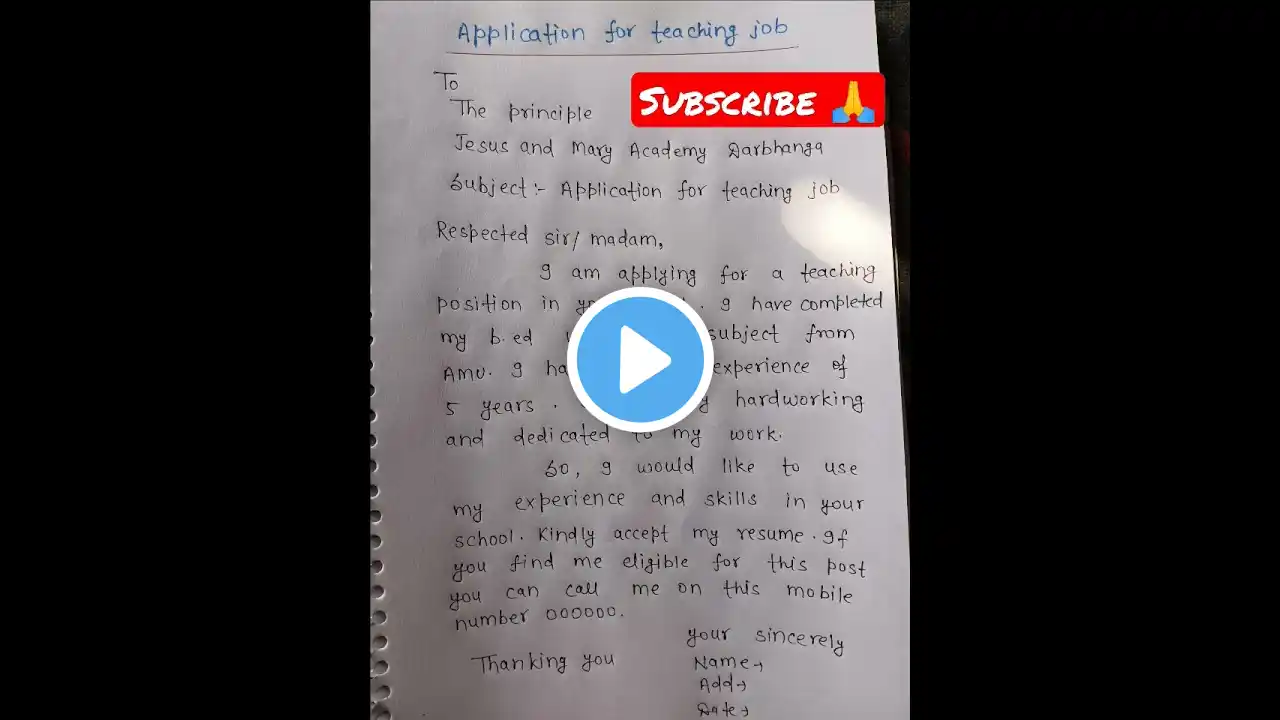 Application for teaching job
To
SUBSCRIBE 🙏
The principle
Jesus and Mary Academy Darbhanga
Subject :- Application for teaching job
Respected sir/ madam,
I am applying for a teaching
position in . I have completed
my b.ed subject from
AMU. I experience of
5 years . hardworking
and dedicated to my work.
So, I would like to use
my experience and skills in your
school. Kindly accept my resume. If
you find me eligible for this post
you can call me on this mobile
number 000000.
your sincerely
Thanking you
Name→
Add→
Date→